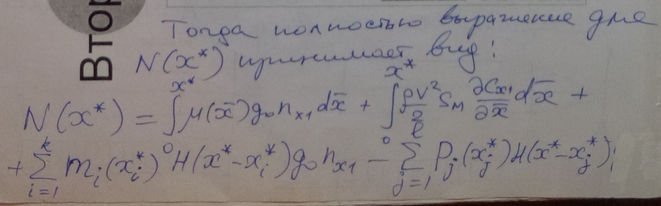 Втор
Тогда полностью выражение для
N(x*) принимает вид:
N(x*) = ∫₀^{x*} μ(x̄)g₀n_{x1}dx̄ + ∫₀^{x*} ρV²/2 S_M ∂C_{x1}/∂x̄ dx̄ +
+ ∑_{i=1}^{k} m_i(x_i*)H(x*-x_i*)g₀n_{x1} - ∑_{j=1}^{l} P_j(x_j*)H(x*-x_j*);